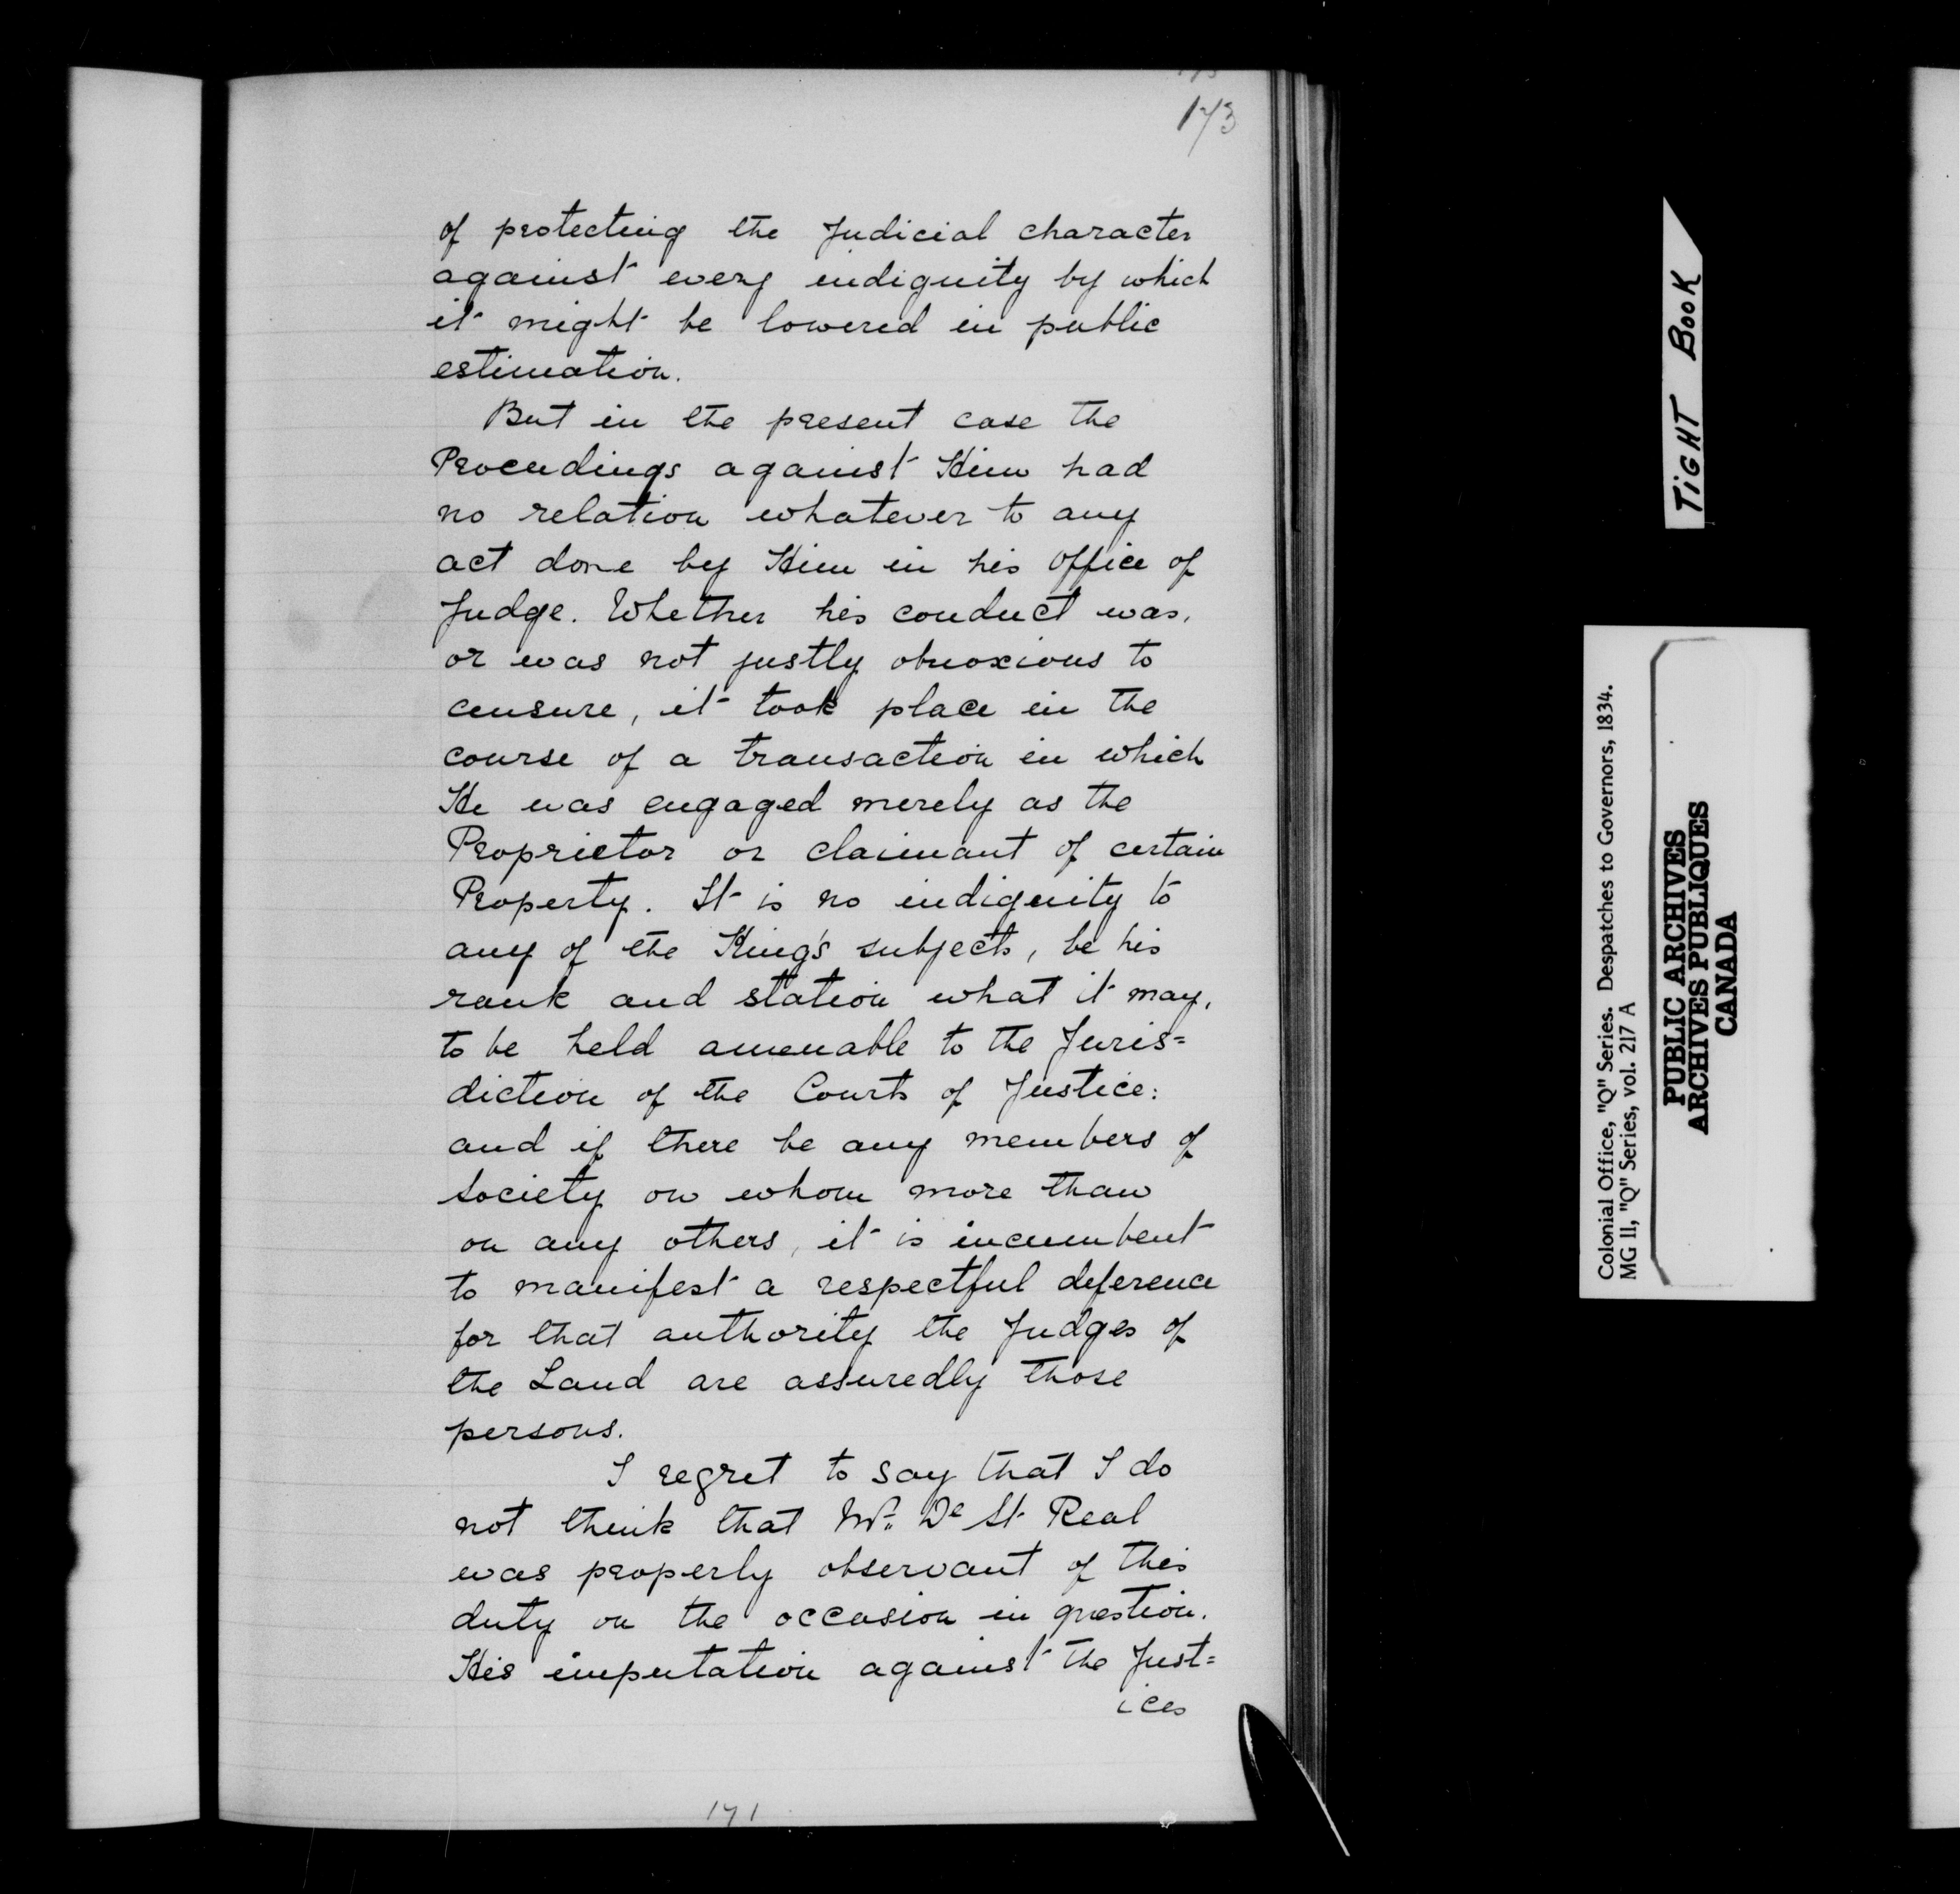 173
of protecting the Judicial character
against every indignity by which
it might be lowered in public
estimation.
But in the present case the
Proceedings against Him had
no relation whatever to any
act done by Him in his office of
Judge. Whether his conduct was,
or was not justly obnoxious to
censure, it took place in the
course of a transaction in which
He was engaged merely as the
Proprietor or claimant of certain
Property. It is no indignity to
any of the King's subjects, be his
rank and station what it may,
to be held amenable to the Juris=
diction of the Courts of Justice:
and if there be any members of
society on whom more than
on any others, it is incumbent
to manifest a respectful deference
for that authority the Judges of
the Land are assuredly those
persons.
I regret to say that I do
not think that Mr. De St Real
was properly observant of this
duty on the occasion in question.
His imputation against the Just=
ices
171
TIGHT BOOK
Colonial Office, "Q" Series. Despatches to Governors, 1834.
MG 11, "Q" Series, vol. 217 A
PUBLIC ARCHIVES
ARCHIVES PUBLIQUES
CANADA